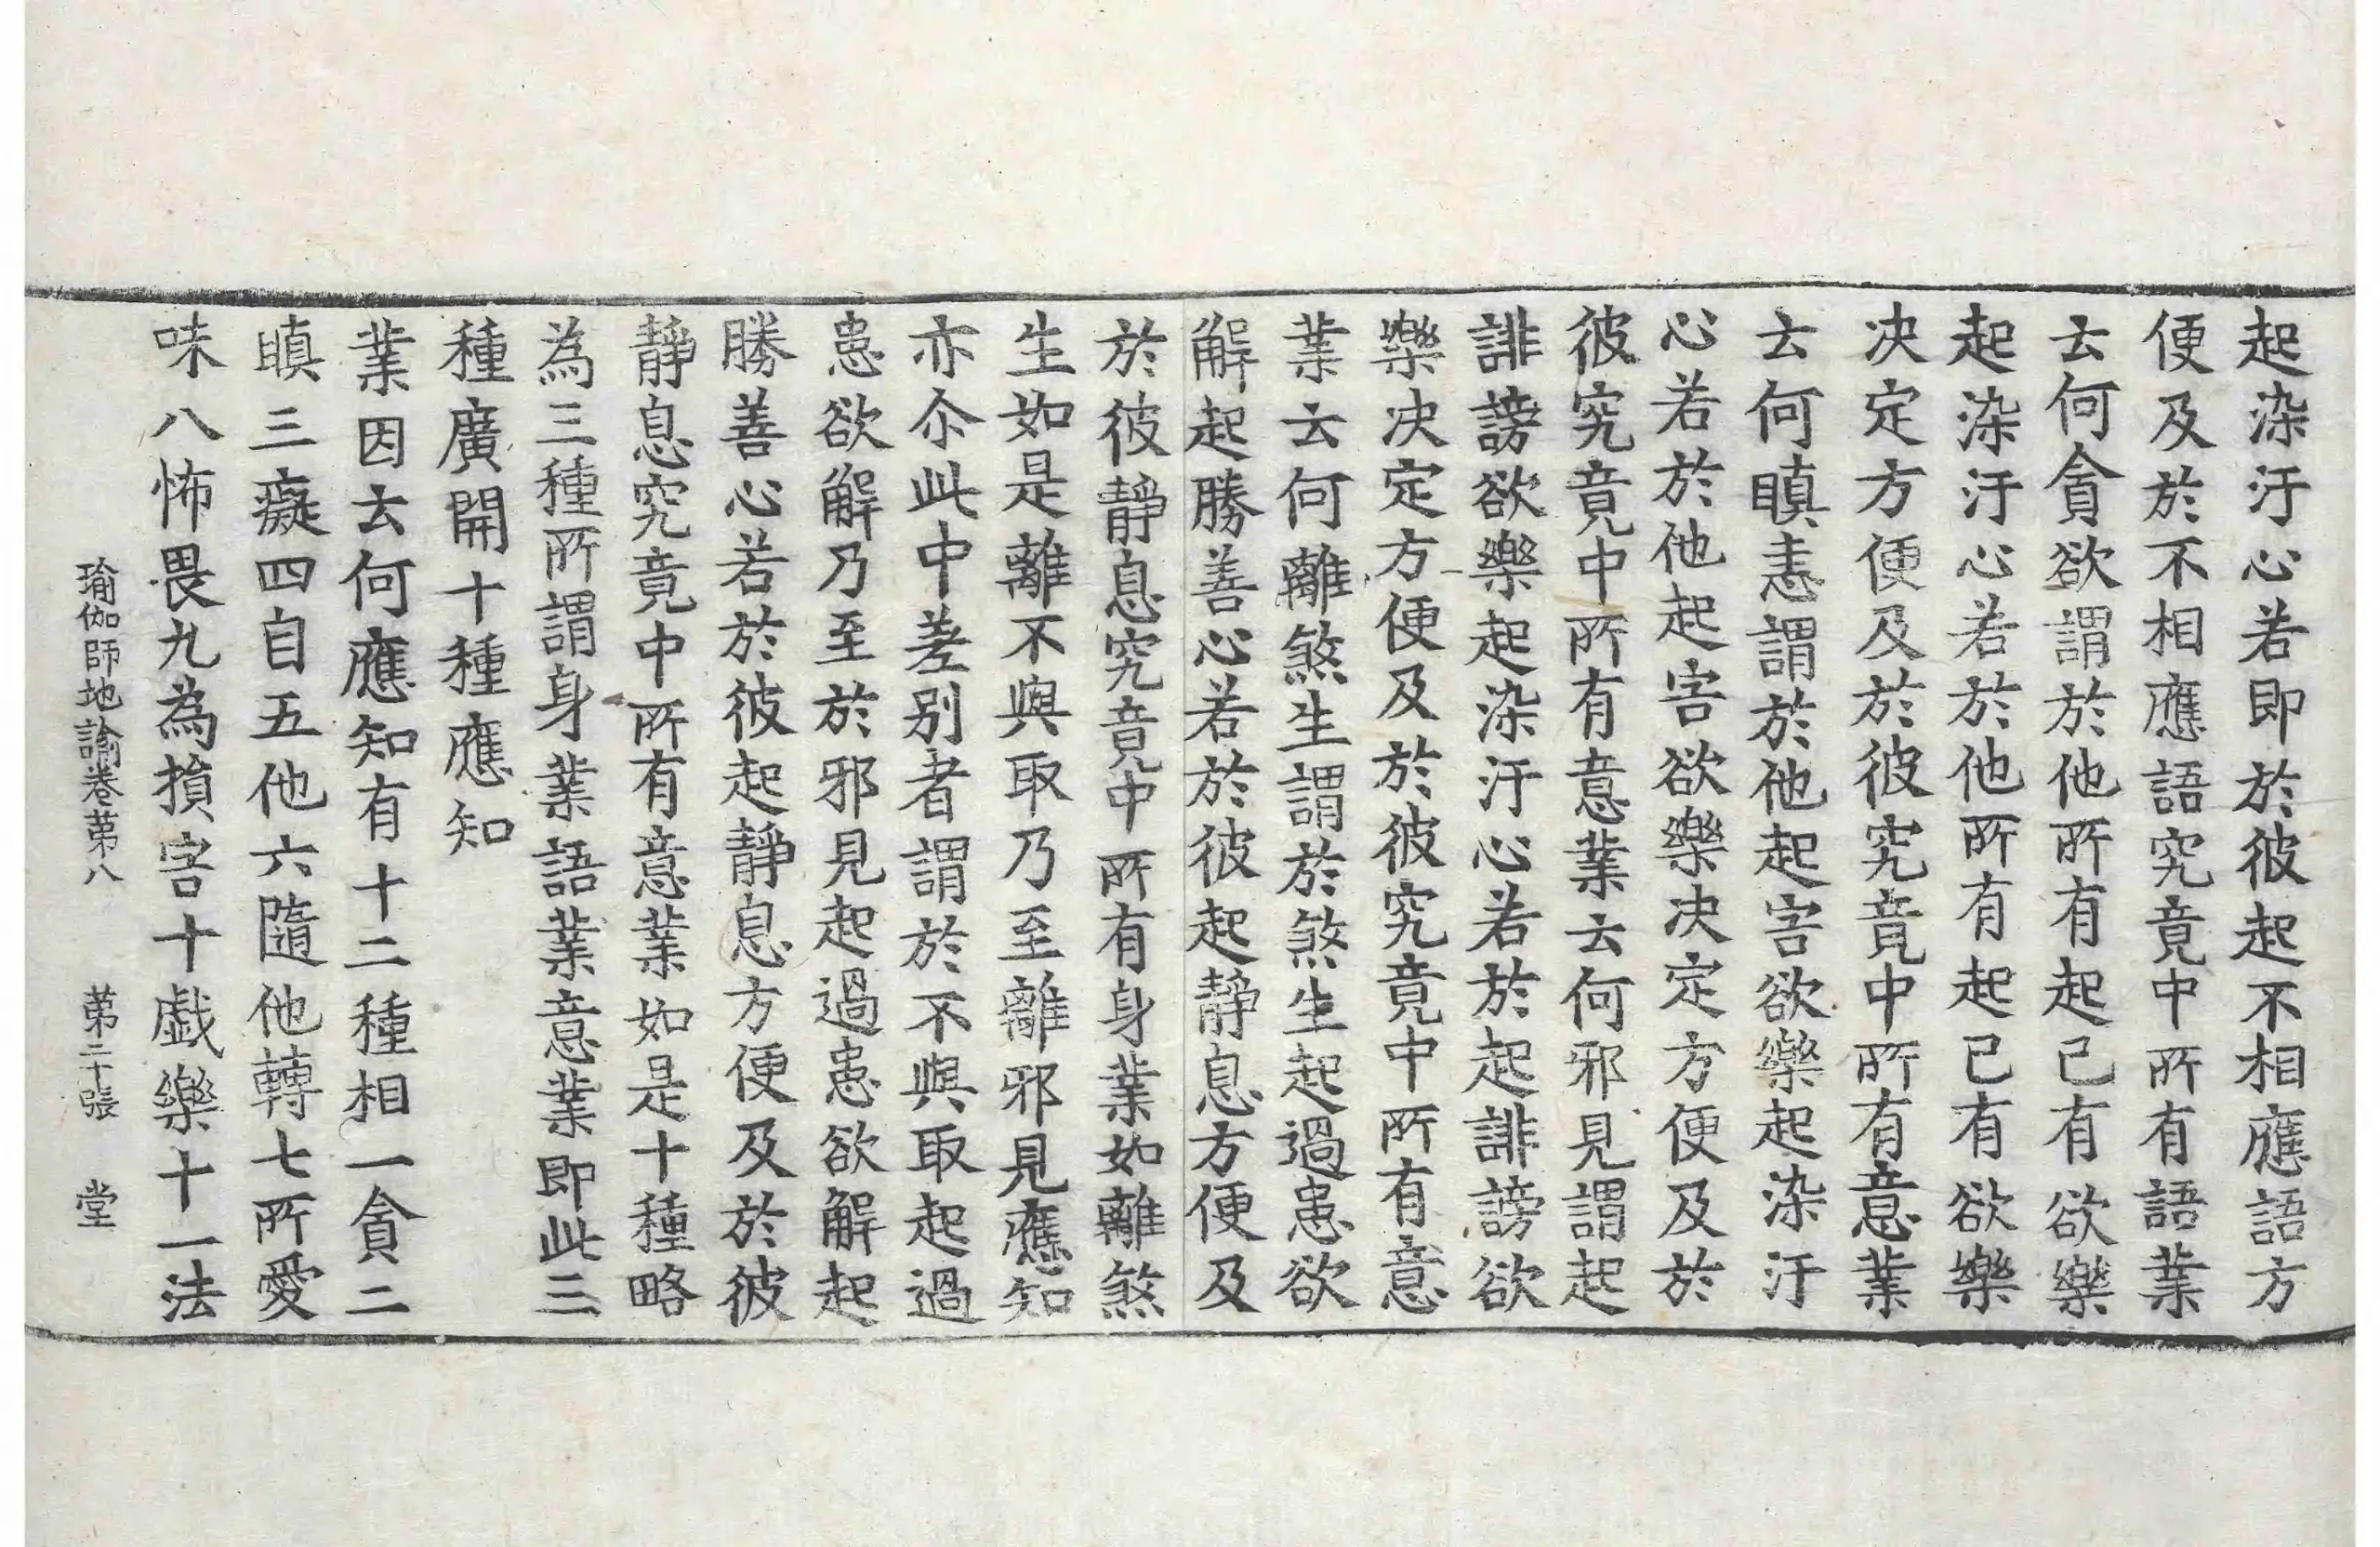 起染汙心若即於彼起不相應語方
便及於不相應語究竟中所有語業
云何貪欲謂於他所有起己有欲樂
起染汙心若於他所有起己有欲樂
决定方便及於彼究竟中所有意業
云何瞋恚謂於他起害欲樂起染汙
心若於他起害欲樂决定方便及於
彼究竟中所有意業云何邪見謂起
誹謗欲樂起染汙心若於起誹謗欲
樂决定方便及於彼究竟中所有意
業云何離煞生謂於煞生起過患欲
解起勝善心若於彼起靜息方便及
於彼靜息究竟中所有身業如離煞
生如是離不與取乃至離邪見應知
亦尒此中差别者謂於不與取起過
患欲解乃至於邪見起過患欲解起
勝善心若於彼起靜息方便及於彼
靜息究竟中所有意業如是十種略
為三種所謂身業語業意業即此三
種廣開十種應知
業因云何應知有十二種相一貪二
瞋三癡四自五他六隨他轉七所愛
味八怖畏九為損害十戲樂十一法
瑜伽師地論卷第八 第二十張 堂